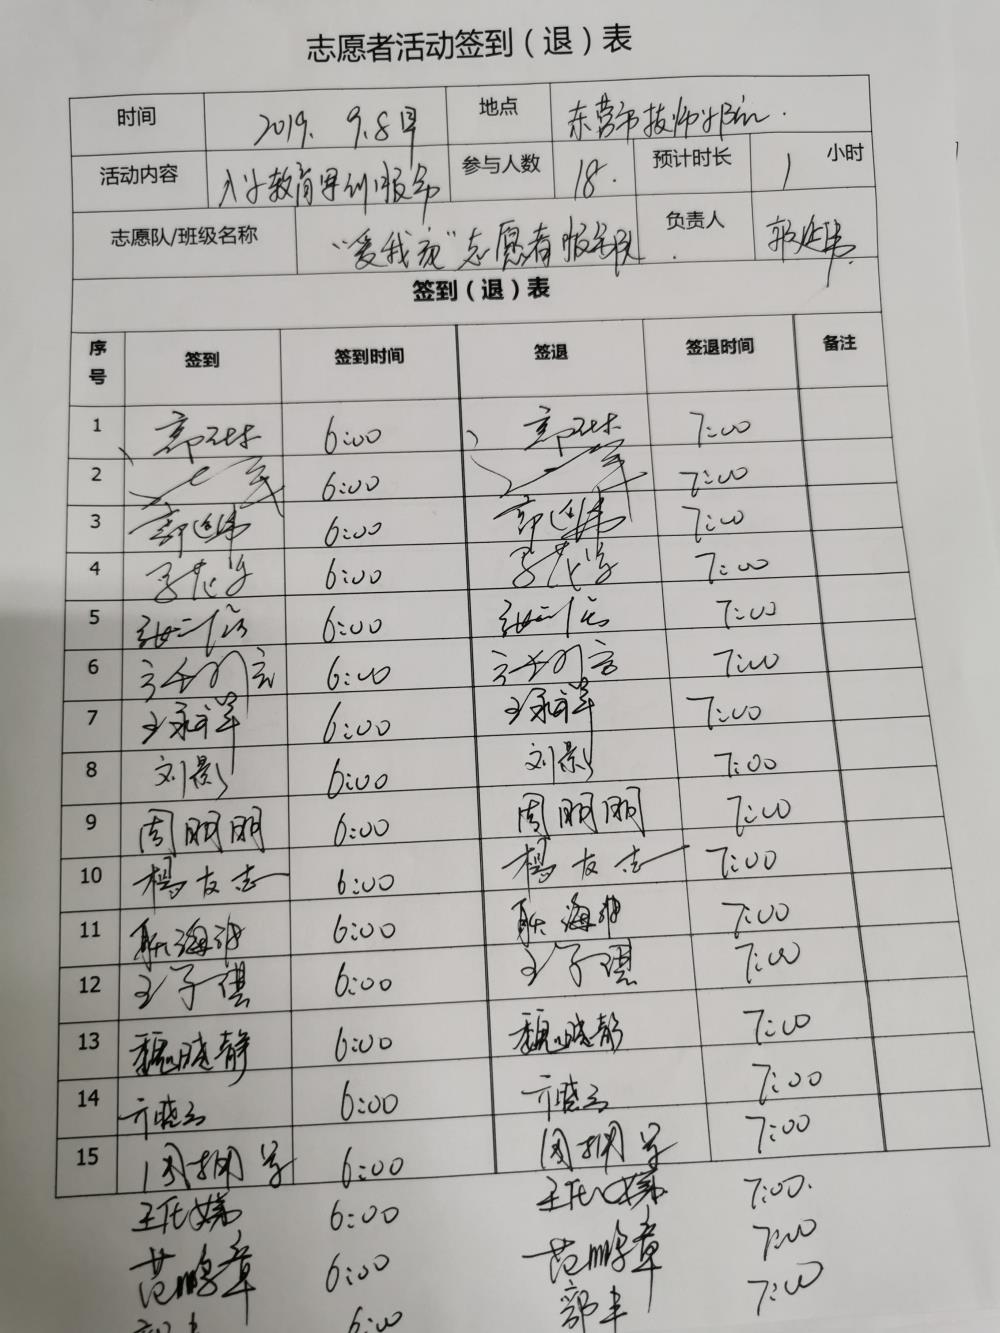 志愿者活动签到（退）表
时间 2019. 9.8早 地点 东营市技师学院.
活动内容 入学教育军训服务 参与人数 18. 预计时长 1 小时
志愿队/班级名称 "爱我家"志愿者服务队. 负责人 郭延伟
签到（退）表
序号 签到 签到时间 签退 签退时间 备注
1 6:00 7:00
2 6:00 7:00
3 郭延伟 6:00 郭延伟 7:00
4 6:00 7:00
5 6:00 7:00
6 6:00 7:00
7 王永祥 6:00 王永祥 7:00
8 刘影 6:00 刘影 7:00
9 周明明 6:00 周明明 7:00
10 杨友志 6:00 杨友志 7:00
11 耿海冲 6:00 耿海冲 7:00
12 王子琪 6:00 王子琪 7:00
13 魏晓静 6:00 魏晓静 7:00
14 6:00 7:00
15 6:00 7:00
6:00 7:00.
范鹏章 6:00 范鹏章 7:00
郭丰 6:00 郭丰 7:00